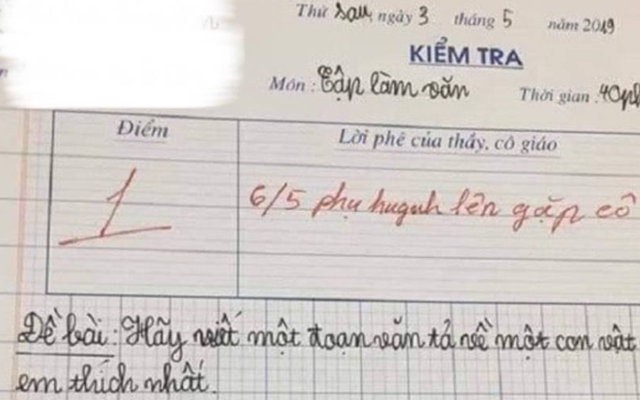 Thứ sáu, ngày 3 tháng 5 năm 2019
KIỂM TRA
Môn : Tập làm văn Thời gian : 40ph
Điểm
Lời phê của thầy, cô giáo
1
6/5 phụ huynh lên gặp cô
Đề bài : Hãy viết một đoạn văn tả về một con vật
em thích nhất.